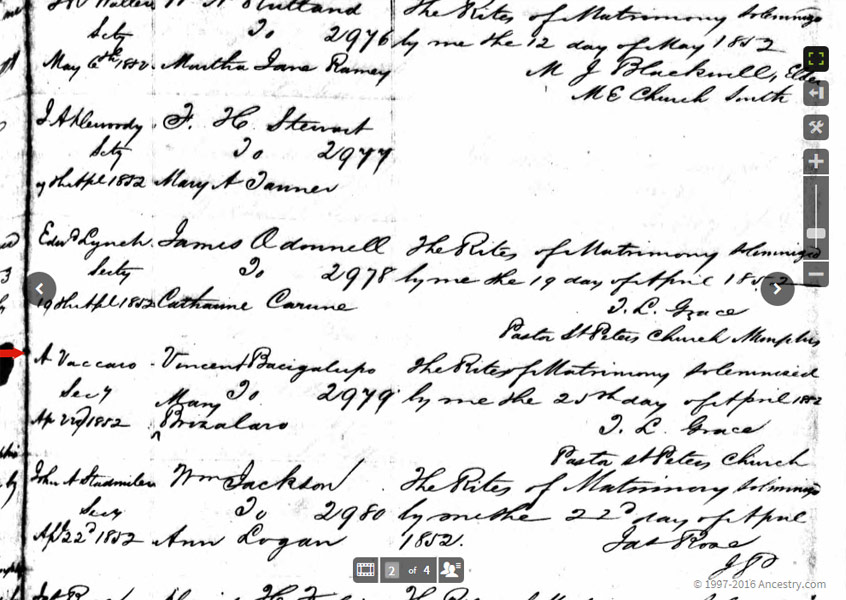 W. H. Rutland The Rites of Matrimony solemnized
Scty To 2976 by me the 12 day of May 1852
May 6th 1852 Martha Jane Ramey M J Blackwell, Elder
ME Church South
F. H. Stewart
Scty To 2977
7th Apl 1852 Mary A Tanner
Edwd Lynch James Odonnell The Rites of Matrimony solemnized
Secty To 2978 by me the 19 day of April 1852
19th Apl 1852 Catharine T. L. Grace
Pastor St Peters Church Memphis
A Vaccaro Vincent Bacigalupo The Rites of Matrimony solemnized
Secy To 2979 by me the day of April 1852
Mary
Ap 1852 T. L. Grace
Pastor St Peters Church
John A Wm Jackson The Rites of Matrimony
Secy To 2980 by me the 22d day of April
Apl 22d 1852 Ann Logan 1852. Jas Rose
JP
2 of 4
© 1997-2016 Ancestry.com